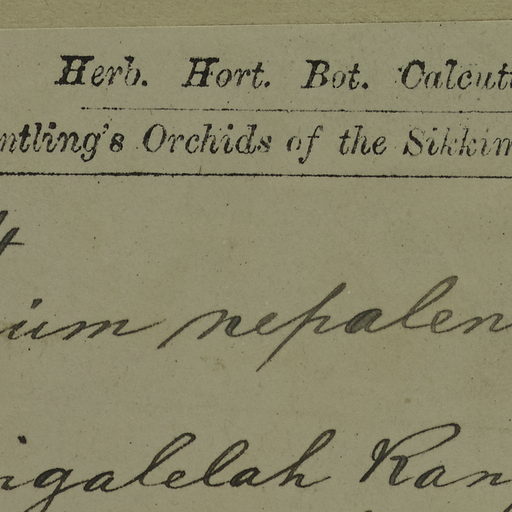 Herb. Hort. Bot. Calcutt
ntling's Orchids of the Sikkim
4
ium nepalen
igalelah Rang